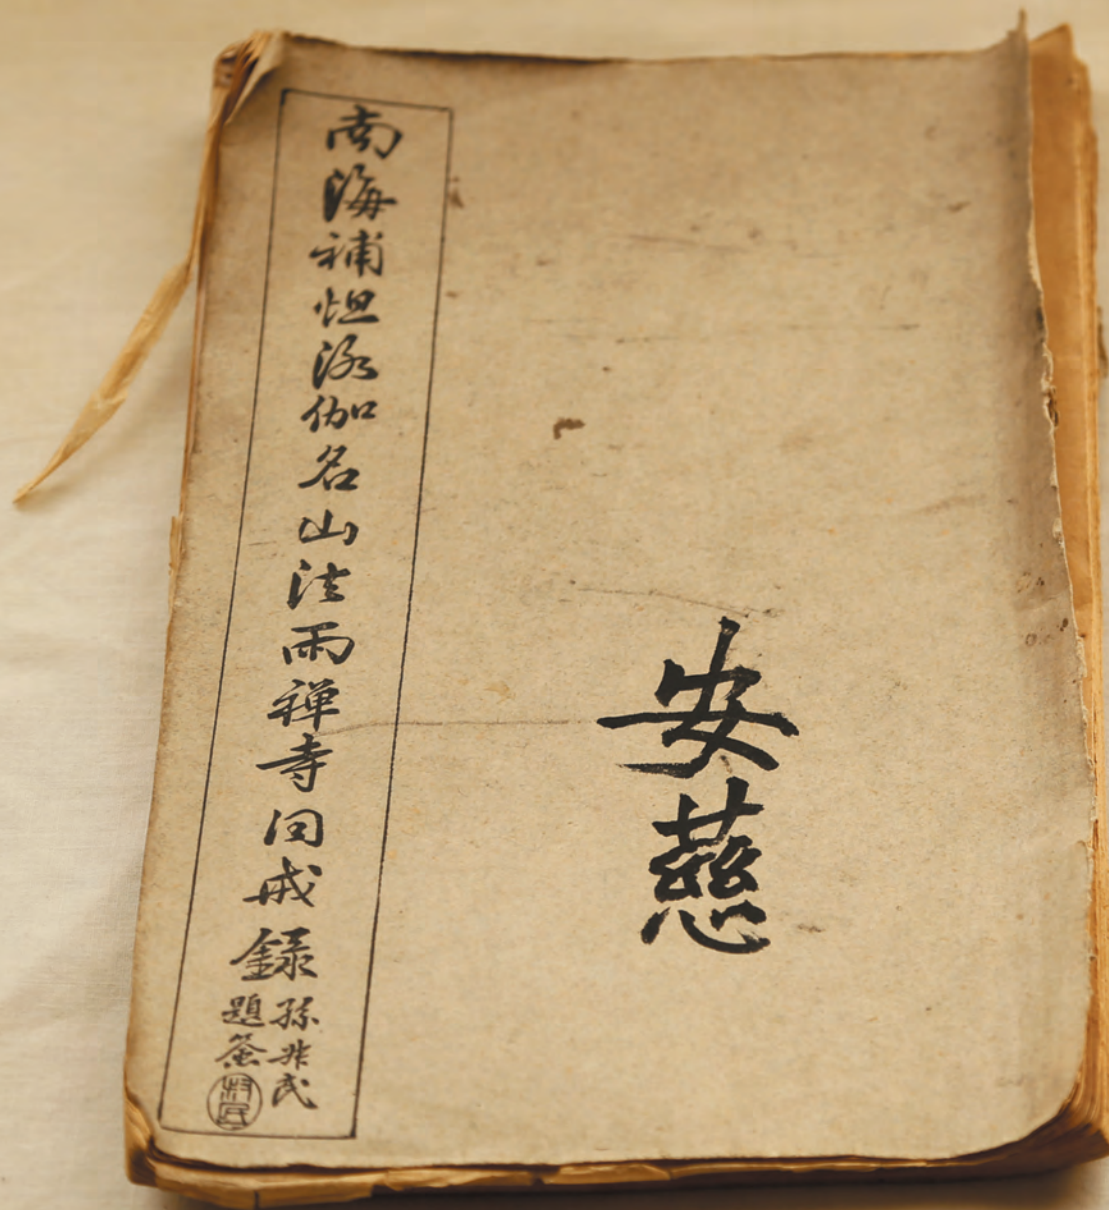 南海補怛洛伽名山法雨禅寺同戒録
孫非民
題簽
安慈